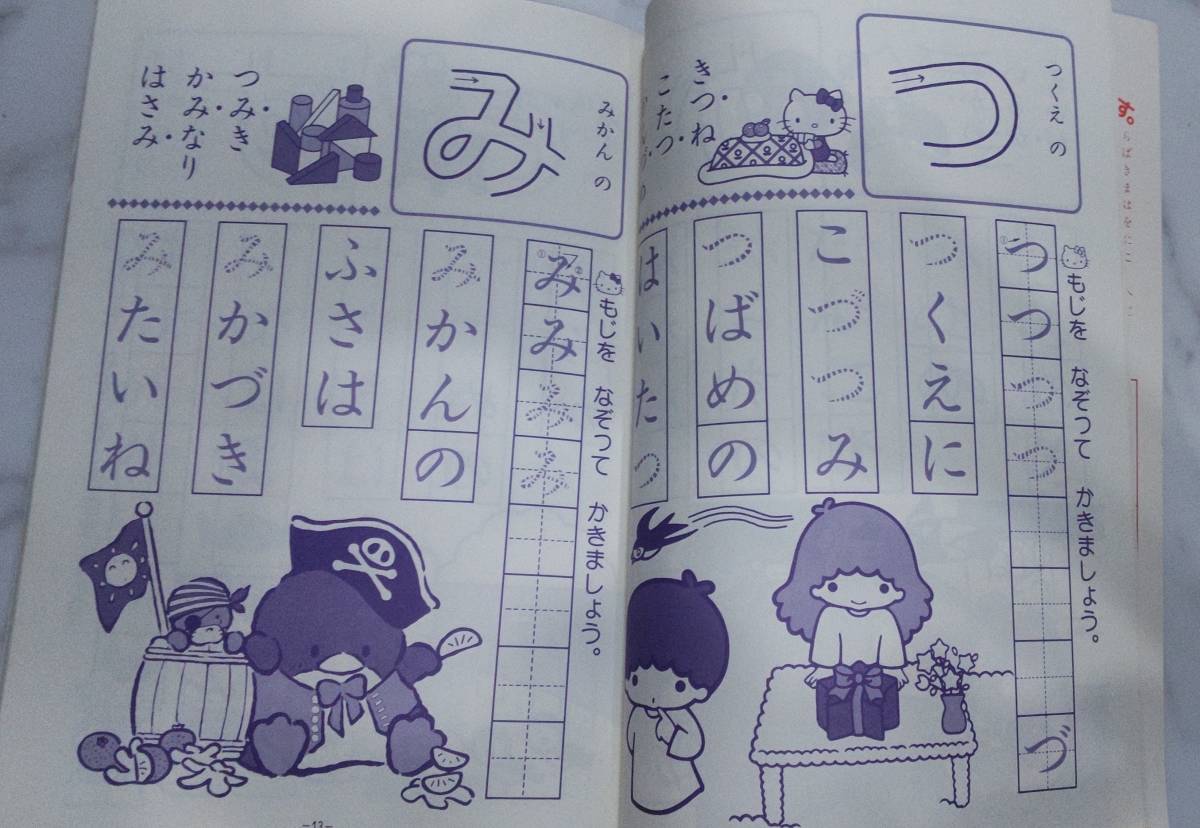 つくえ の
つ
きつね
こたつ
もじを なぞって かきましょう。
つ つ つ つ づ
つくえに
こづつみ
つばめの
はいたつ
みかん の
み
つみき
かみなり
はさみ
もじを なぞって かきましょう。
み み み み
みかんの
ふさは
みかづき
みたいね
—13—